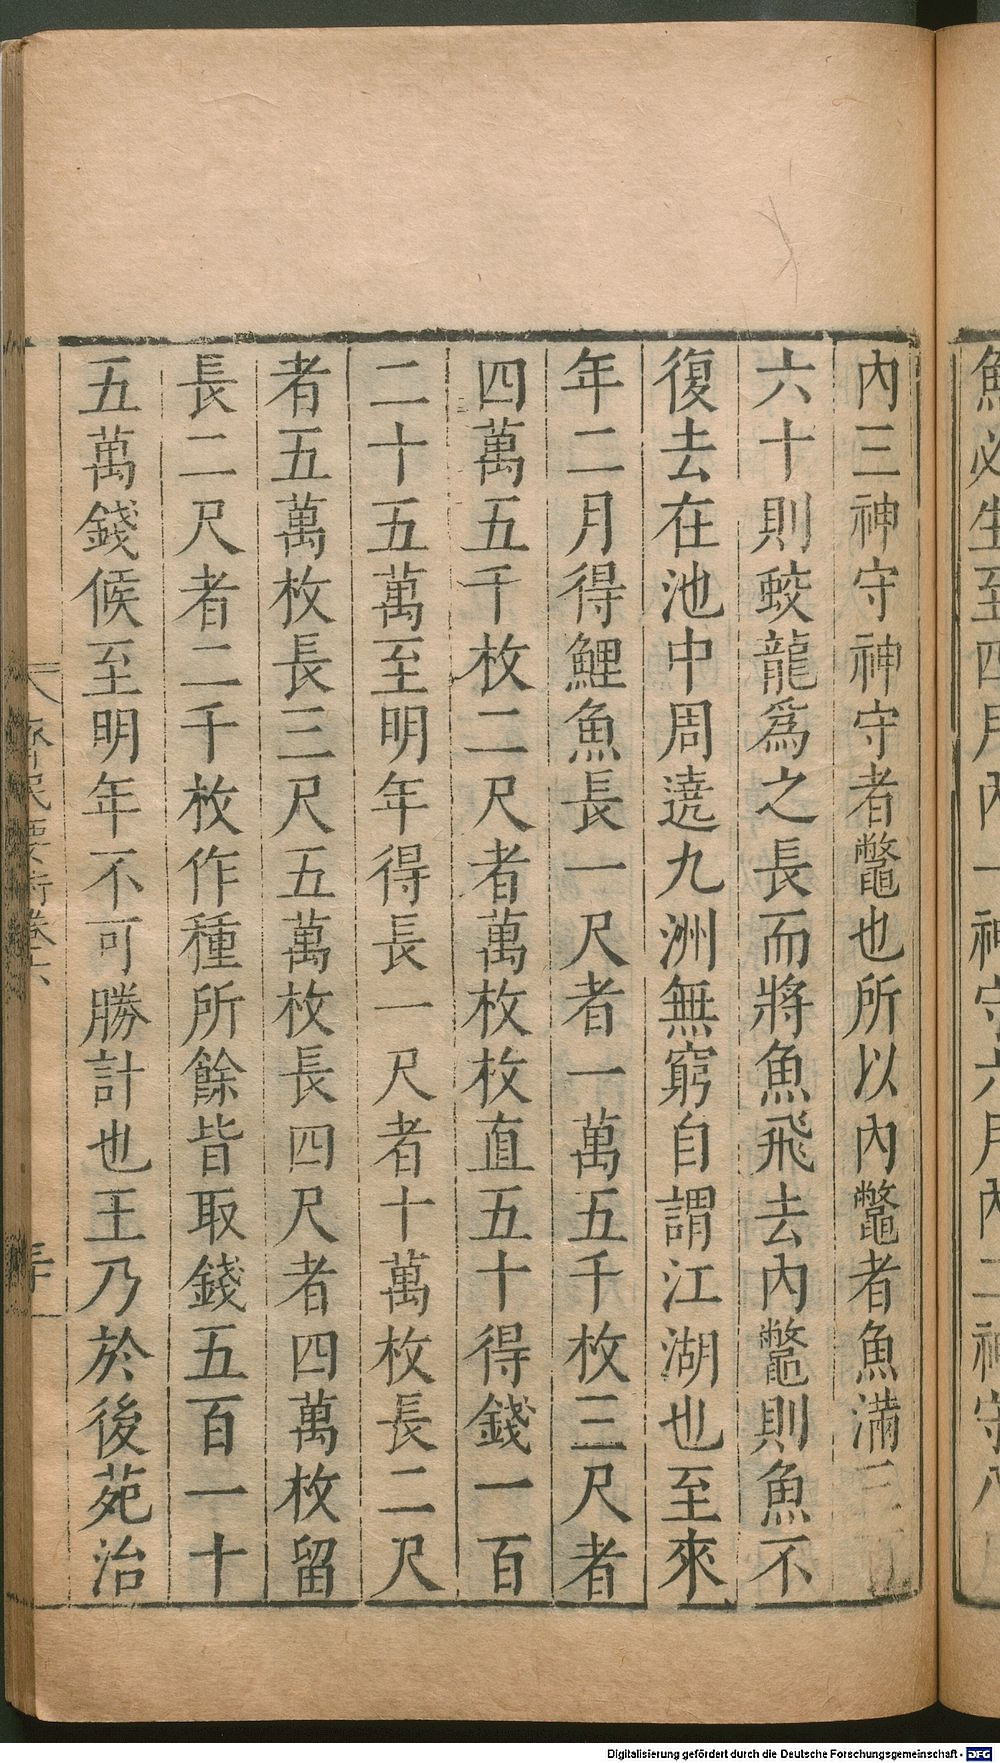 魚必生至四月內一神守六月內二神守八月
內三神守神守者鼈也所以內鼈者魚滿三百
六十則蛟龍爲之長而將魚飛去內鼈則魚不
復去在池中周遶九洲無窮自謂江湖也至來
年二月得鯉魚長一尺者一萬五千枚三尺者
四萬五千枚二尺者萬枚枚直五十得錢一百
二十五萬至明年得長一尺者十萬枚長二尺
者五萬枚長三尺五萬枚長四尺者四萬枚留
長二尺者二千枚作種所餘皆取錢五百一十
五萬錢候至明年不可勝計也王乃於後苑治
齊民要術卷六
Digitalisierung gefördert durch die Deutsche Forschungsgemeinschaft - DFG